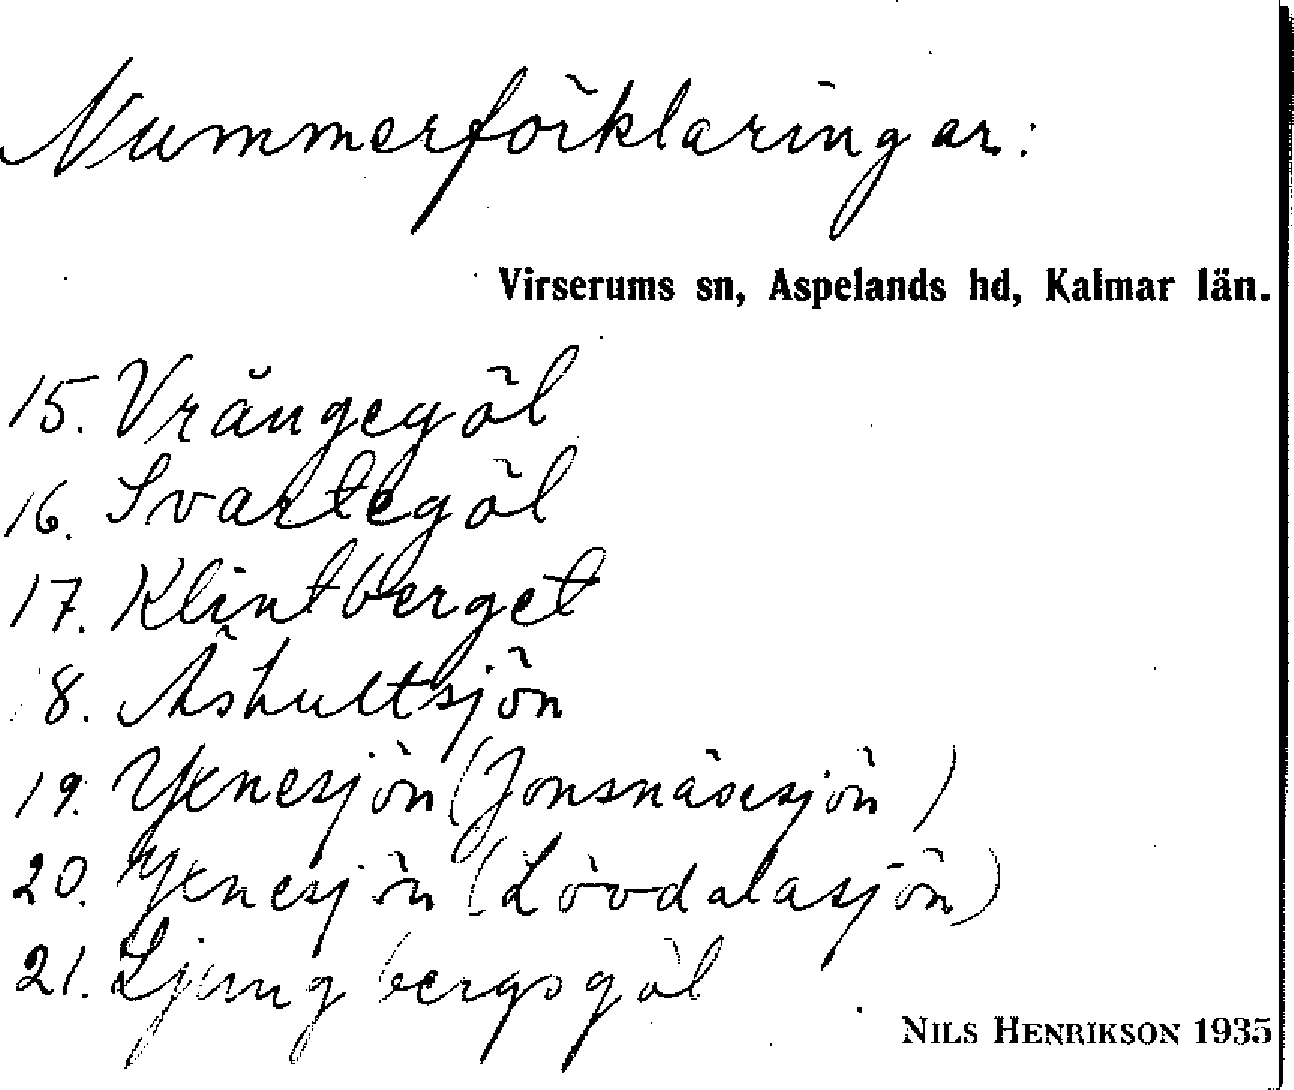 Nummerförklaringar:
Virserums sn, Aspelands hd, Kalmar län.
15. Vrångegöl
16. Svartegöl
17. Klintberget
18. Åshultsjön
19. Yxnesjön (Jonsnäsesjön)
20. Yxnesjön (Lövdalasjön)
21. Ljungbergsgöl
NILS HENRIKSON 1935